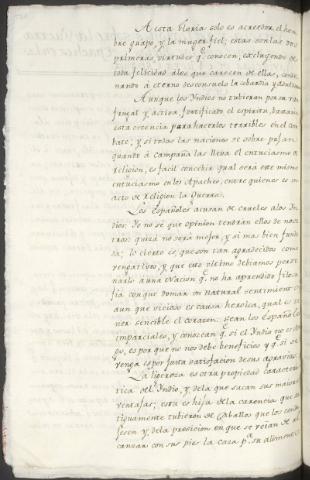 A esta Gloria solo es acreedor el hom
bre guapo, y la muger fiel; estas son las dos
primeras virtudes q.e conocen, excluyendo de
toda felicidad alos que carecen de ellas, conde
nando á eterno desconsuelo la cobardia y
Aunque los Yndios no tubieran por su na
frugal y activa, fortificado el espiritu, bastaria
esta creencia para hacerlos terribles en el com
bate; y si todas las naciones se sobre pujan
quando á campaña las lleva el entusiasmo de
Religion, es facil concebir qual será este mismo
entusiasmo enlos Apaches, entre quienes es un
acto de Religion la Guerra.
Los Españoles acusan de crueles alos Yn
dios. Yo no sé que opinion tendran ellos de noso
tros: quizá no será mejor, y si mas bien funda
da; lo cierto es, que son tan agradecidos como
vengativos, y que esto ultimo debiamos perdo
narlo auna Nacion q.e no ha aprendido filoso
fia con que domar un natural sentimiento q.e
aun que vicioso es causa heroica, qual es te
ner sencible el corazon. Sean los Españoles
imparciales, y conozcan q.e si el Yndio no es ami
go, es por que no nos debe beneficios y q.e si se
venga es por justa satisfacion de sus agravios.
La ligereza es otra propiedad caracteris
tica del Yndio, y dela que sacan sus maiores
ventajas; esta es hija dela carencia que an
tiguamente tubieron de caballos que los condu
jesen, y dela presicion en que se veian de al
canzar con sus pies la caza p.a su alimento